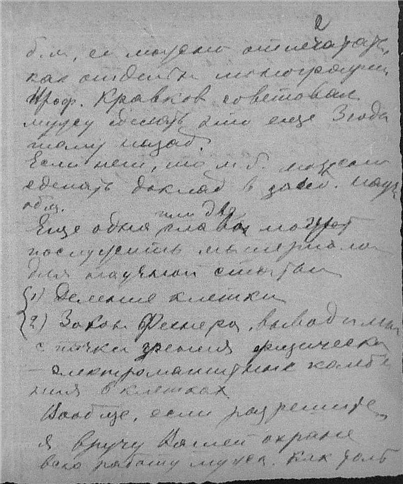 2
б.м., ее можно отпечатать,
как отдельн монографию
Проф. Кравков советовал
мужу сделать это еще 3 года
тому назад.
Если нет, то м.б. можно
сделать доклад в засед. науч
общ.
Еще одна или две главы могут
послужить материалом
для научной статьи
1) Деление клетки
2) Закон Фехнера, выводимый
с точки зрения физическ
электромагнитных колеба
ния в клетках
Вообще, если разрешите,
я вручу Вашей охране
всю работу мужа. Как толь